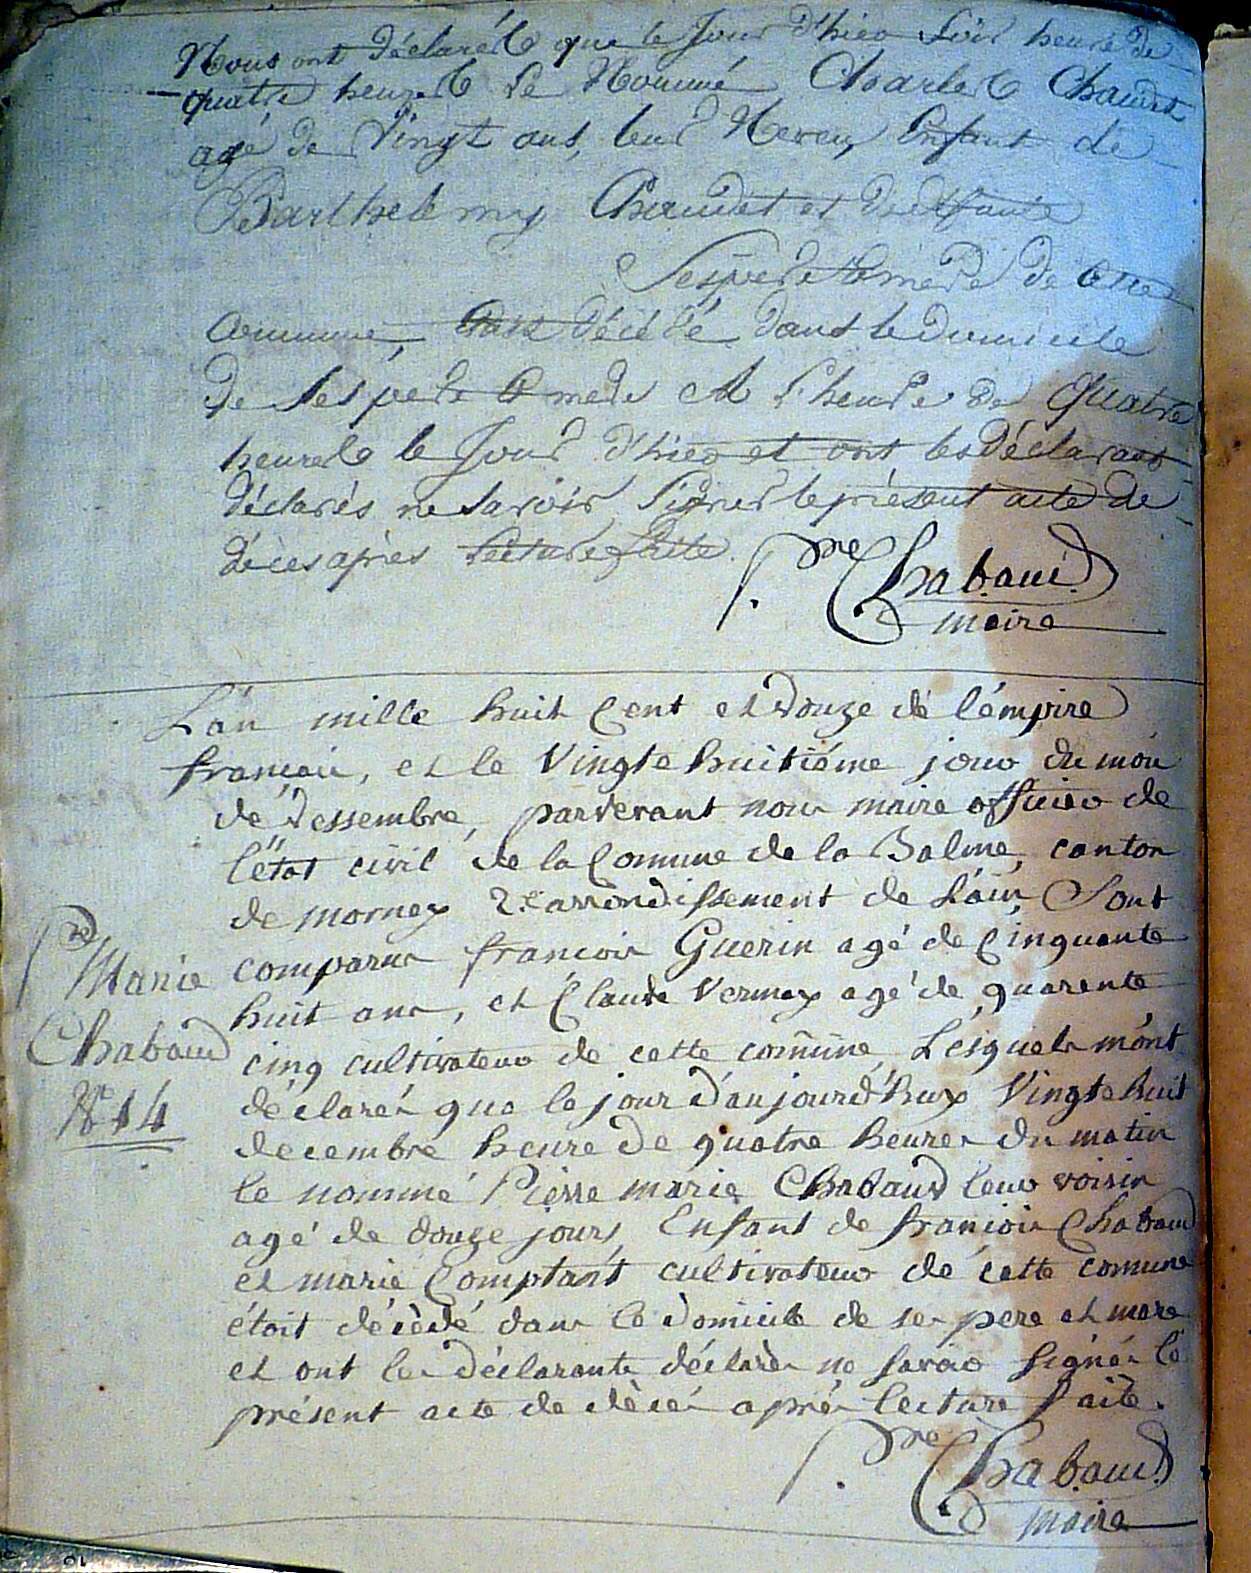 Nous ont déclarés que le Jour d'hier Soir heure de
quatre heures Le Nommé Charles Chaudet
agé de Vingt ans, leur Neveu, Enfant de
Barthelemy Chaudet et de defunte
Ses pere et mere de Cette
Commune, décédé dans le Domicile
de Ses pere et mere A l'heure de Quatre
heures le Jour d'hier et ont les déclarans
déclarés ne Savoir Signer le présent acte de
décès après Lecture faite.
P.re Chabaud
maire
L'an mille huit Cent et douze de l'émpire
francais, et le Vingte huitiéme jour du mois
de dessembre, parvevant nous maire officier de
l'état civil de la Comune de la Balme, canton
de mornay 2e arrondissement de L'ain, Sont
comparus francois Guerin agé de Cinquante
huit ans, et Claude Vermay agé de quarente
cinq cultivateur de cette commune, Lésquels m'ont
déclarés que le jour d'aujourd'huy Vingte huit
decembre heure de quatre heures du matin
le nommé Pierre marie Chabaud leur voisin
agé de douze jours, Enfant de francois Chabaud
et marie Comptant cultivateur de cette comune
étoit décèdé dans le domicile de ses pere et mere
et ont les déclarants déclarés ne savoir signér le
présent acte de décés aprés lecture faite.
P.re Chabaud
maire
P.re
Marie
Chabaud
N° 14